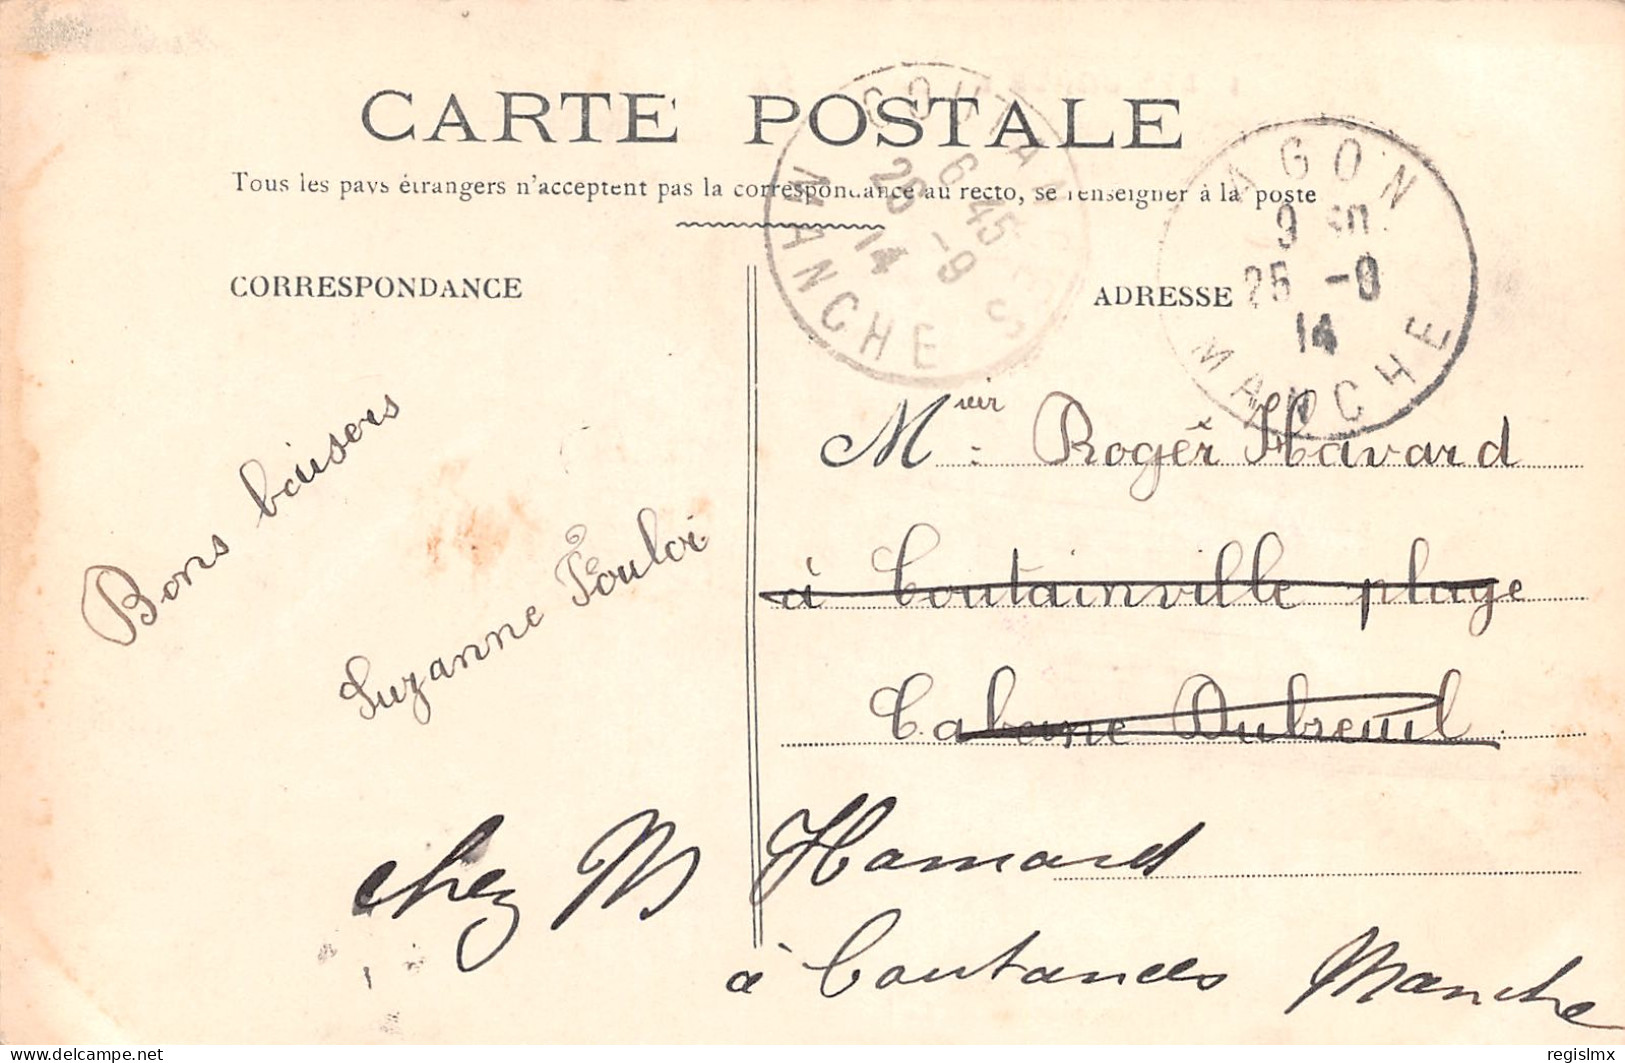 CARTE POSTALE
Tous les pays étrangers n'acceptent pas la correspondance au recto, se renseigner à la poste
COUTANCES
6 45
26 -9
14
MANCHE
AGON
9
25 -9
14
MANCHE
CORRESPONDANCE
ADRESSE
Bons baisers
Suzanne
Mr Roger Havard
à Coutainville plage
Cabane Dubreuil
chez M Hamard
à Coutances Manche
delcampe.net
regislmx